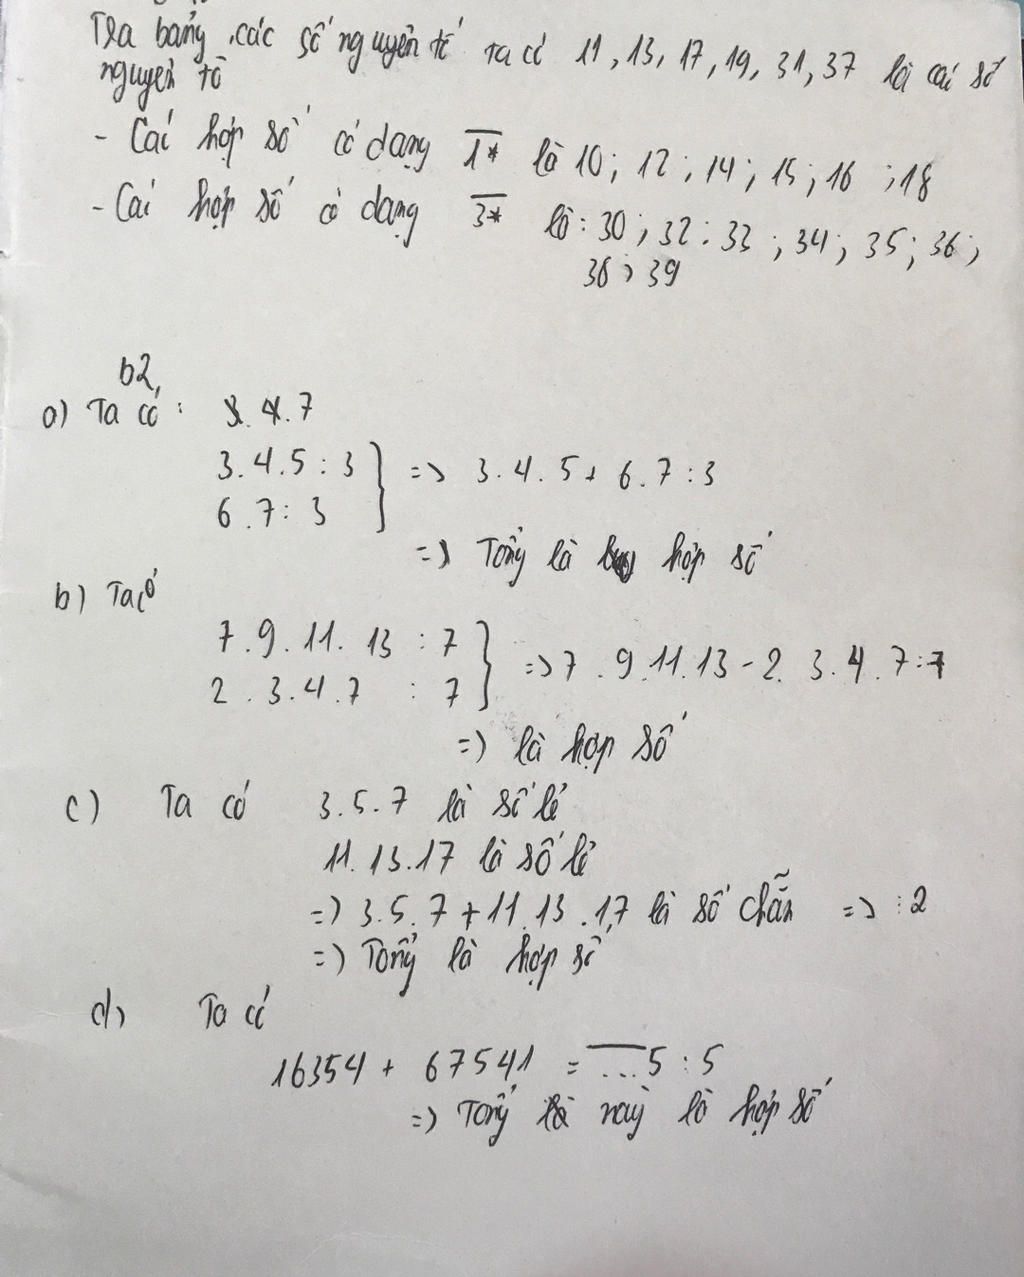 Tra bảng các số nguyên tố ta có 11, 13, 17, 19, 31, 37 là các số
nguyên tố
- Các hợp số có dạng 1* là 10; 12; 14; 15; 16; 18
- Các hợp số có dạng 3* là: 30; 32; 33; 34; 35; 36;
38; 39
b2,
a) Ta có: 4.7
3.4.5 : 3
6.7 : 3
} => 3.4.5 + 6.7 : 3
=> Tổng là hợp số
b) Ta có
7.9.11.13 : 7
2.3.4.7 : 7
} => 7.9.11.13 - 2.3.4.7 : 7
=> là hợp số
c) Ta có 3.5.7 là số lẻ
11.13.17 là số lẻ
=> 3.5.7 + 11.13.17 là số chẵn => : 2
=> Tổng là hợp số
d) Ta có
16354 + 67541 = ...5 : 5
=> Tổng này là hợp số